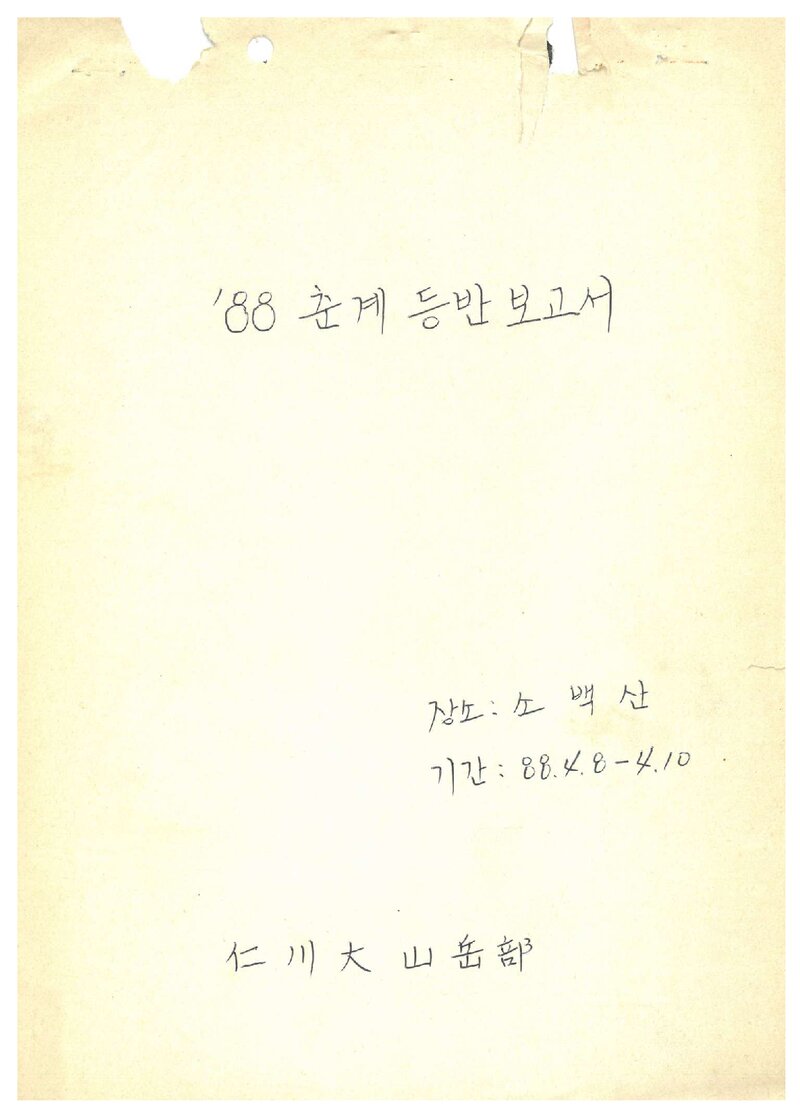 '88 춘계 등반 보고서
장소: 소 백 산
기간: 88.4.8-4.10
仁川大 山岳部